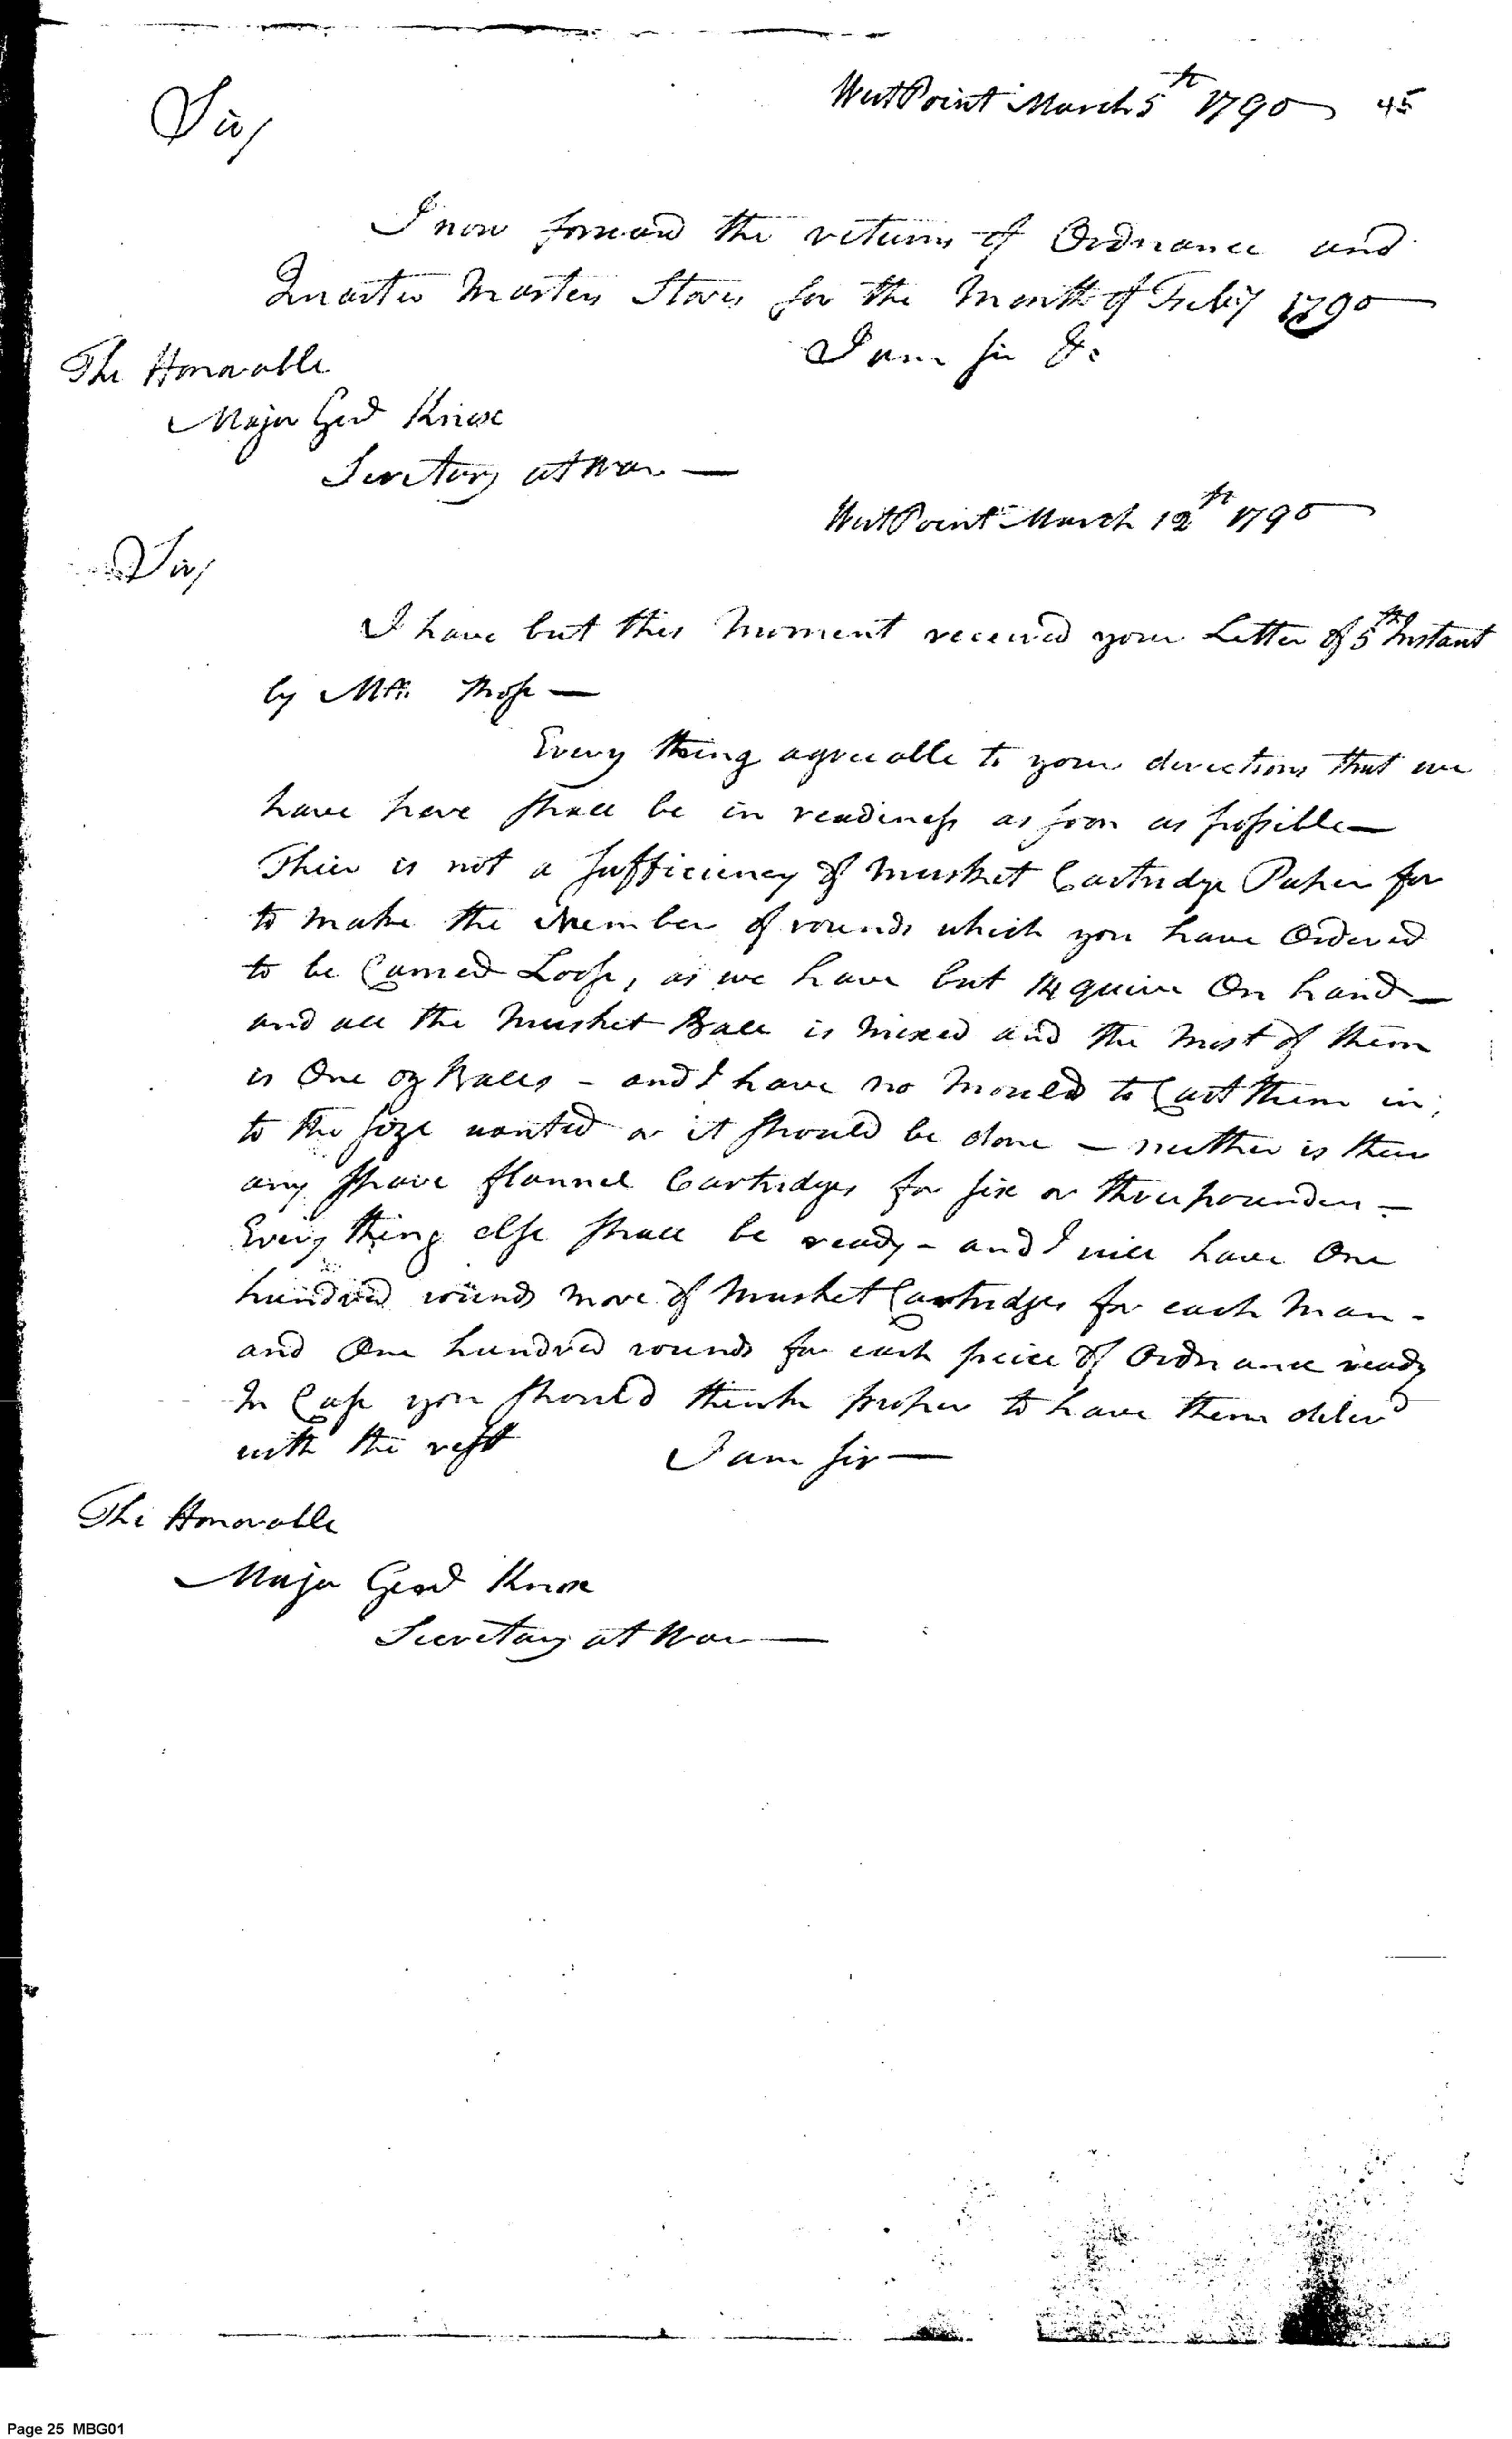 West Point March 5th 1790 45
Sir,
I now forward the returns of Ordnance and
Quarter Masters Stores for the Month of Feby 1790
I am Sir &c
The Honorable
Major Genl Knox
Secretary at War —
West Point March 12th 1790
Sir,
I have but this Moment received your Letter of 5th Instant
by Mr. Moss —
Every thing agreeable to your directions that we
have here shall be in readiness as soon as possible —
Their is not a Sufficiency of Musket Cartridge Paper for
to Make the Number of rounds which you have Ordered
to be Carried Loose, as we have but 14 quire On hand —
and all the Musket Ball is Mixed and the Most of them
is One oz Balls - and I have no Mould to Cast them in,
to the Size wanted or it Should be done — neither is their
any Spare flannel Cartridges for six or three pounders —
Every thing else Shall be ready - and I will have One
hundred rounds More of Musket Cartridges for each Man -
and One hundred rounds for each peice of Ordnance ready
In Case you Should think proper to have them deliverd
with the rest I am Sir —
The Honorable
Major Genl Knox
Secretary at War —
Page 25 MBG01